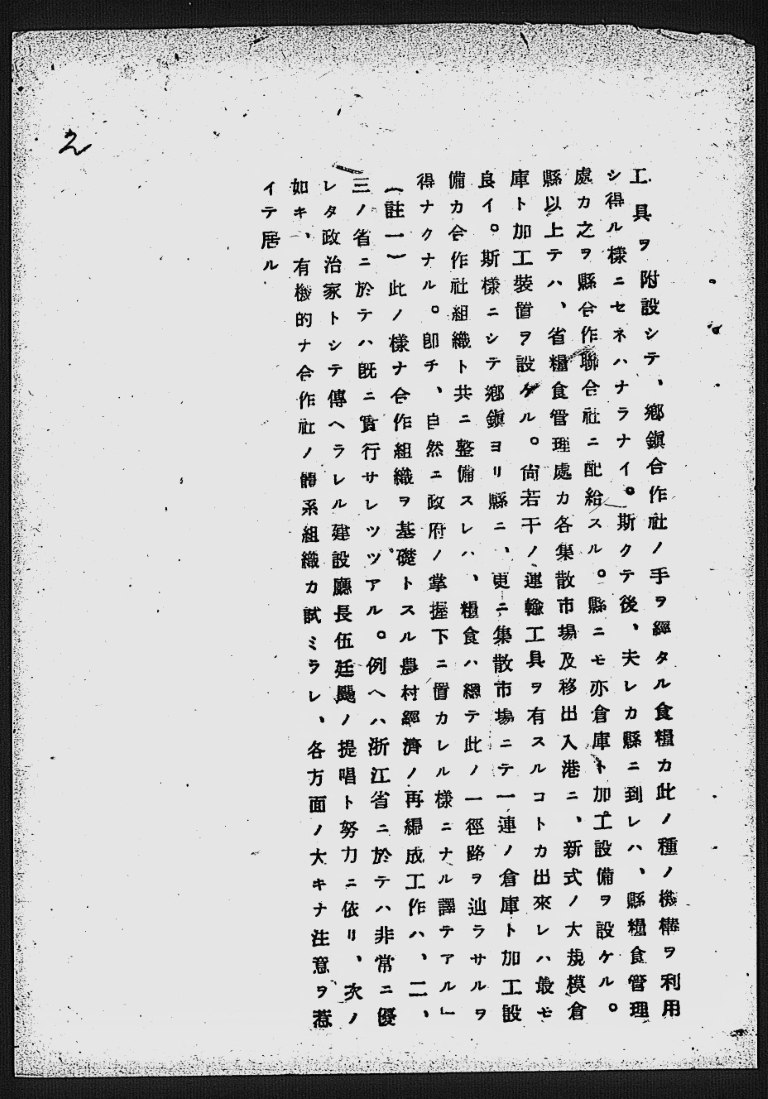 2
工具ヲ附設シテ、鄕鎭合作社ノ手ヲ經タル食糧カ此ノ種ノ機構ヲ利用
シ得ル樣ニセネハナラナイ。斯クテ後、夫レカ縣ニ到レハ、縣糧食管理
處カ之ヲ縣合作聯合社ニ配給スル。縣ニモ亦倉庫ト加工設備ヲ設ケル。
縣以上テハ、省糧食管理處カ各集散市場及移出入港ニ、新式ノ大規模倉
庫ト加工裝置ヲ設ケル。尙若干ノ運輸工具ヲ有スルコトカ出來レハ最モ
良イ。斯樣ニシテ鄕鎭ヨリ縣ニ、更ニ集散市場ニテ一連ノ倉庫ト加工設
備カ合作社組織ト共ニ整備スレハ、糧食ハ總テ此ノ一徑路ヲ辿ラサルヲ
得ナクナル。卽チ、自然ニ政府ノ掌握下ニ置カレル樣ニナル譯テアル」
(註一) 此ノ樣ナ合作組織ヲ基礎トスル農村經濟ノ再編成工作ハ、二、
三ノ省ニ於テハ旣ニ實行サレツツアル。例ヘハ浙江省ニ於テハ非常ニ優
レタ政治家トシテ傳ヘラレル建設廳長伍廷颺ノ提唱ト努力ニ依リ、次ノ
如キ、有機的ナ合作社ノ體系組織カ試ミラレ、各方面ノ大キナ注意ヲ惹
イテ居ル